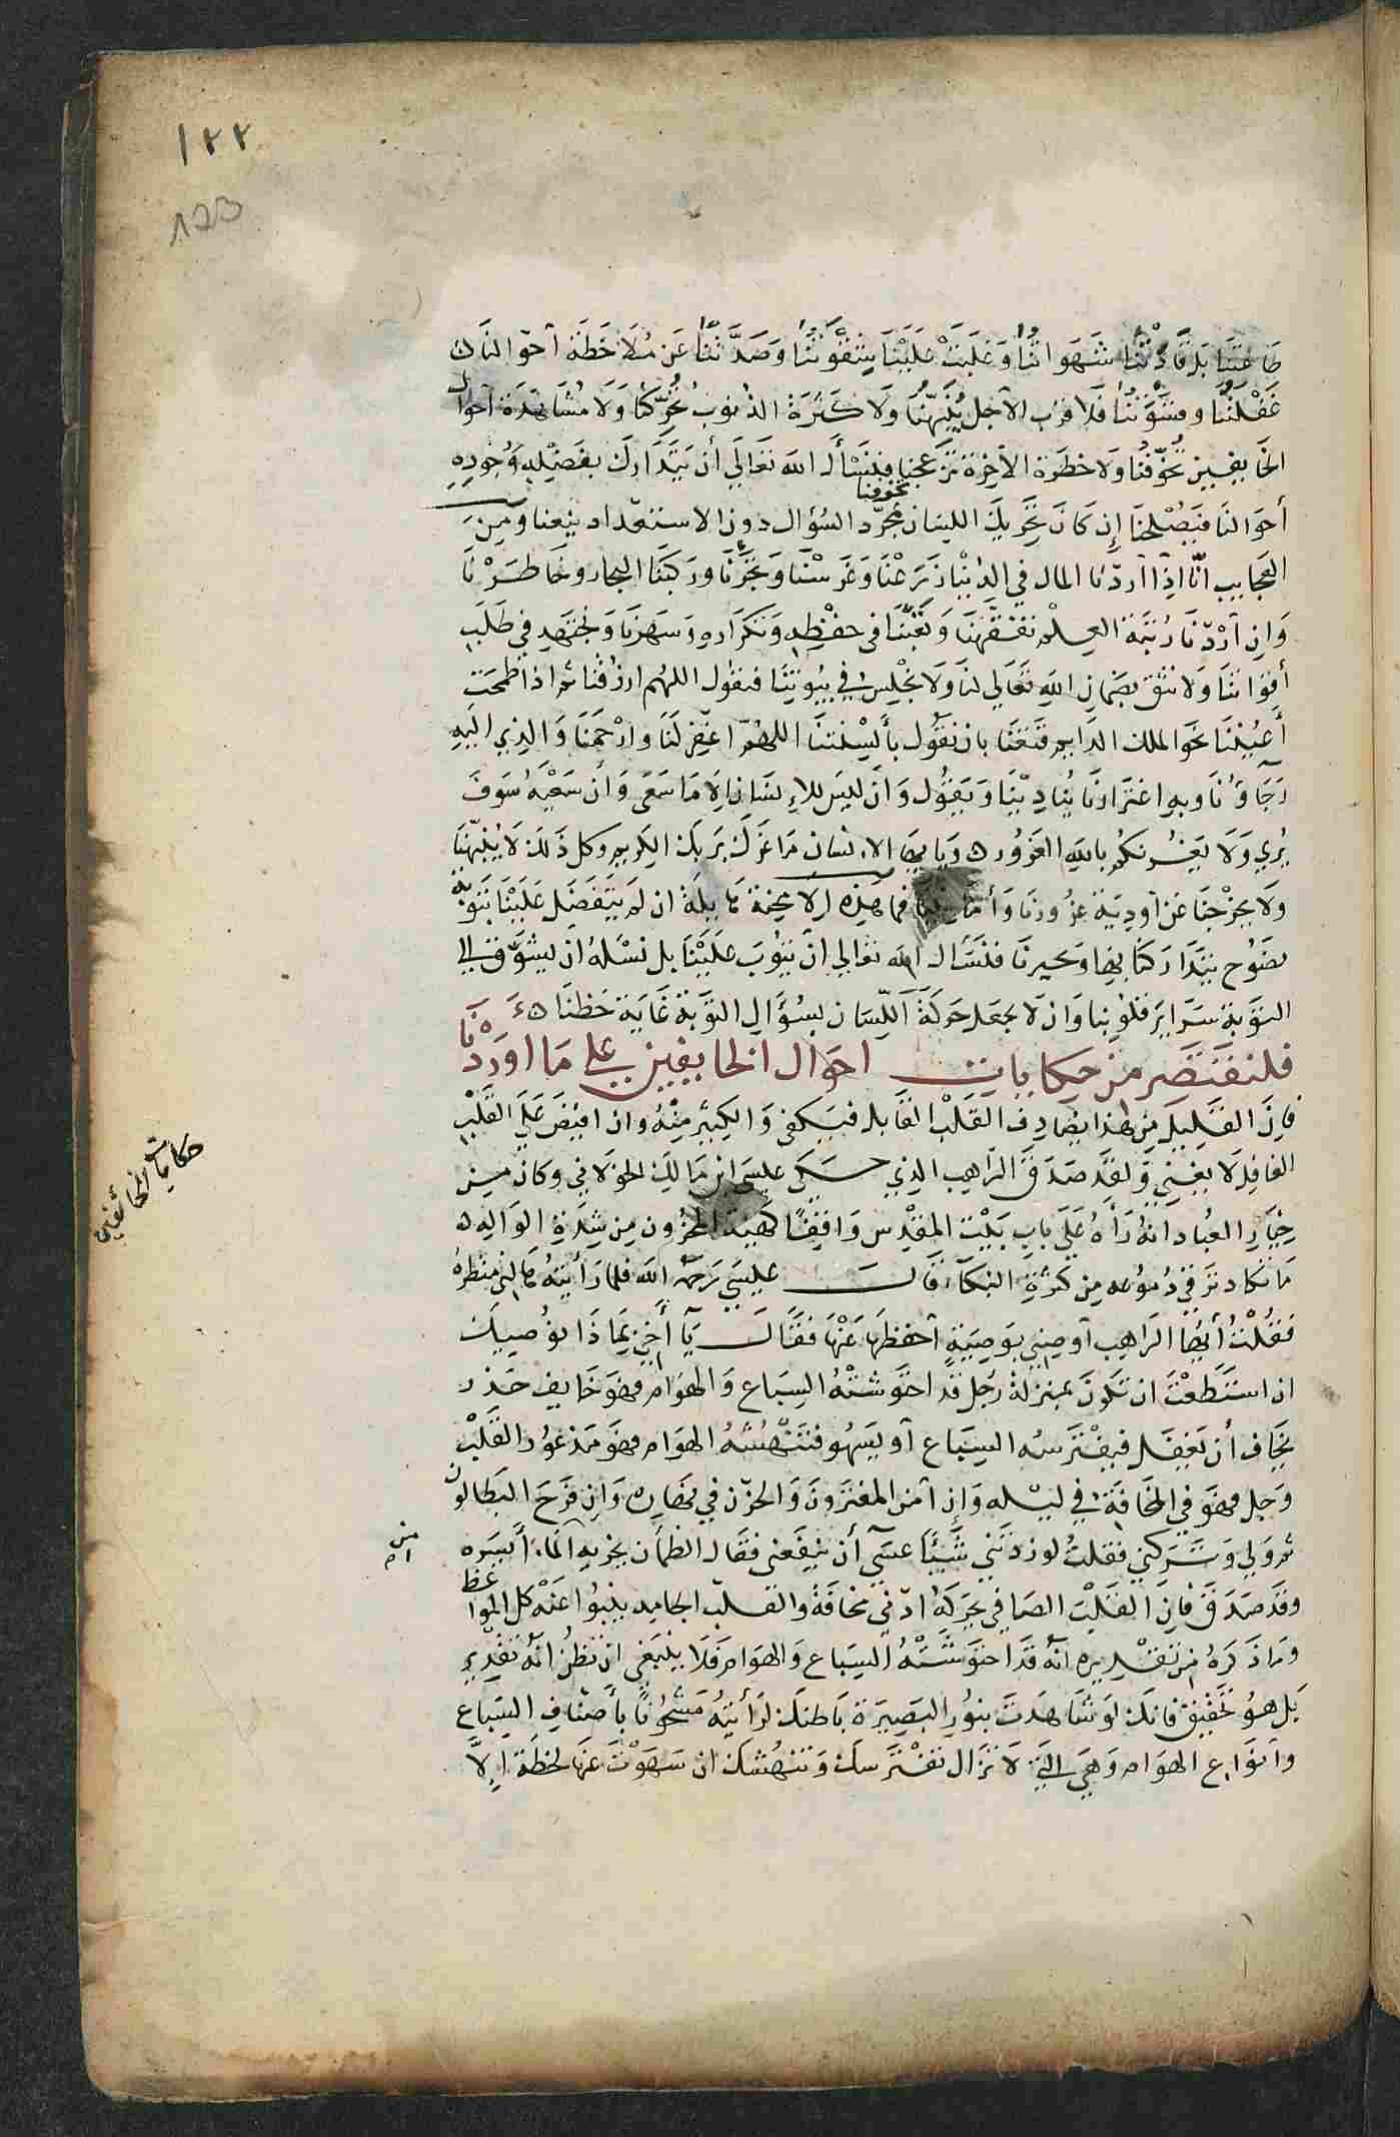 ١٢٢
123
طاعتنا بل قادتنا شهواتنا وغلبت علينا شقوتنا وصدتنا عن ملاحظة أحوالنا
غفلتنا وقسوتنا فلا قرب الأجل ينبهنا ولا كثرة الذنوب تحركنا ولا مشاهدة أحوال
الخايفين تخوفنا ولا خطرة الآخرة تزعجنا فنسأل الله تعالى أن يتدارك بفضله وجوده
تخوفنا
أحوالنا فيصلحنا إن كان تحريك اللسان بمجرد السؤال دون الاستعداد ينفعنا ومن
العجايب أنا إذا أردنا المال في الدنيا زرعنا وغرسنا وتجرنا وركبنا البحار وخاطرنا
وان أردنا رتبة العلم تفقهنا وتعبنا في حفظه وتكراره وسهرنا ونجتهد في طلب
أقواتنا ولا نثق بضمان الله تعالى لنا ولا نجلس في بيوتنا فنقول اللهم ارزقنا ثم اذا طمحت
أعيننا نحو الملك الدايم قنعنا بان نقول بألسنتنا اللهم اغفر لنا وارحمنا والذي اليه
رجاؤنا وبه اغترارنا ينادينا ويقول وان ليس للإنسان إلا ما سعى وأن سعيه سوف
يرى ولا يغرنكم بالله الغرور ويا يها الانسان ما غرك بربك الكريم وكل ذلك لا ينبهنا
ولا يخرجنا عن أودية غرورنا وأمانينا فما هذه الا محنة هايلة ان لم يتفضل علينا بتوبة
نصوح يتداركنا بها ويجيرنا فنسأل الله تعالى ان يتوب علينا بل نسئله ان يشوق الى
التوبة سراير قلوبنا وان لا يجعل حركة اللسان بسؤال التوبة غاية حظنا
فلنقتصر من حكايات احوال الخايفين على ما اوردنا
فان القليل من هذا يصادف القلب القابل فيكفي والكثير منه وان افيض على القلب
الغافل لا يغني ولقد صدق الراهب الذي حكى عيسى ابن مالك الخولاني وكان من
خيار العباد انه رأه على باب بيت المقدس واقفا كهيئة المحزون من شدة الوله
ما تكاد ترقى دموعه من كثرة البكاء قال عيسى رحمه الله فلما رأيته هالني منظره
فقلت أيها الراهب أوصني بوصية أحفظها عنك فقال يا أخي بماذا يوصيك
ان استطعت ان تكون بمنزلة رجل قد احتوشته السباع والهوام فهو خايف حذر
يخاف أن يغفل فيفترسه السباع أو يسهو فتنهشه الهوام فهو مذعور القلب
وجل فهو في المخافة في ليله وان آمن المغترون والحزن في نهاره وان فرح البطالون
ثم ولى وتركني فقلت لو زدتني شيئا عسى أن ينفعني فقال الظمآن يجزيه من الماء أيسره
وقد صدق فان القلب الصافي يحركه ادنى مخافة والقلب الجامد ينبوا عنه كل المواعظ
وما ذكره من تقديره أنه قد احتوشته السباع والهوام فلا ينبغي ان تظن انه تقدير
بل هو تحقيق فانك لو شاهدت بنور البصيرة باطنك لرأيته مشحونا بأصناف السباع
وانواع الهوام وهي التي لا تزال تفترسك وتنهشك ان سهوت عنها لحظة الا
حكايات الخائفين